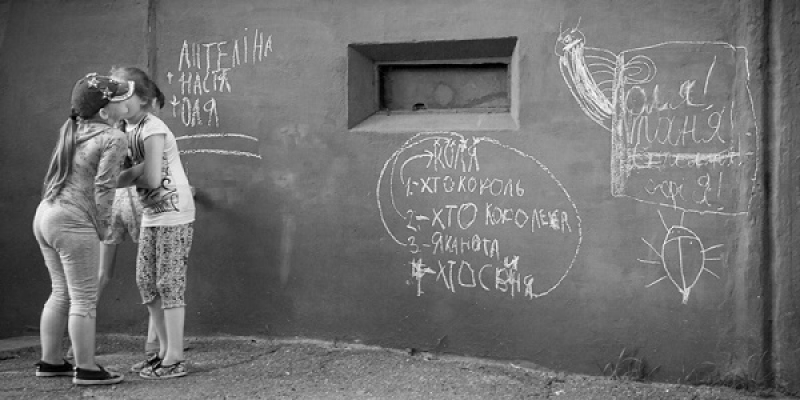 АНГЕЛІНА
+ НАСТЯ
+ ОЛЯ
КОЛА
1-ХТО КОРОЛЬ
2-ХТО КОРОЛЕВА
3-ЯКА НОТА
4-ХТО СВИНЯ
Оля!